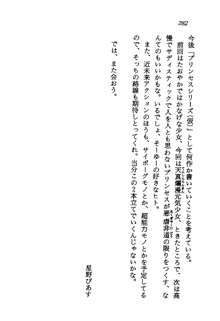 282
今後「プリンセスシリーズ（仮）」として何作か書いていくことを考えている。
前回はたおやかではかなげな少女、今回は天真爛漫元気少女、ときたところで、次は高
慢でサディスティックで人を人とも思わないプリンセスが悪虐非道の限りをつくす、な
んてのもいいかもな。いるでしょ、そーゆーの好きなヒト。
次に、近未来アクションのほうも、サイボーグモノとか、超能力モノとかを予定してる
から、そっちの路線も切れることはない。当分この２本立てでいくんじゃないかな。
では、また会おう。
星野ぴあす